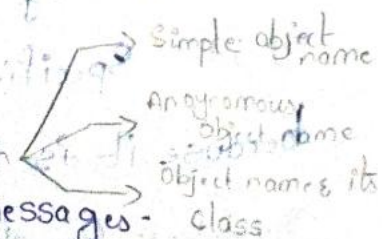 Simple object
name
Anoynomous
object name
Object name & its
class
essages-